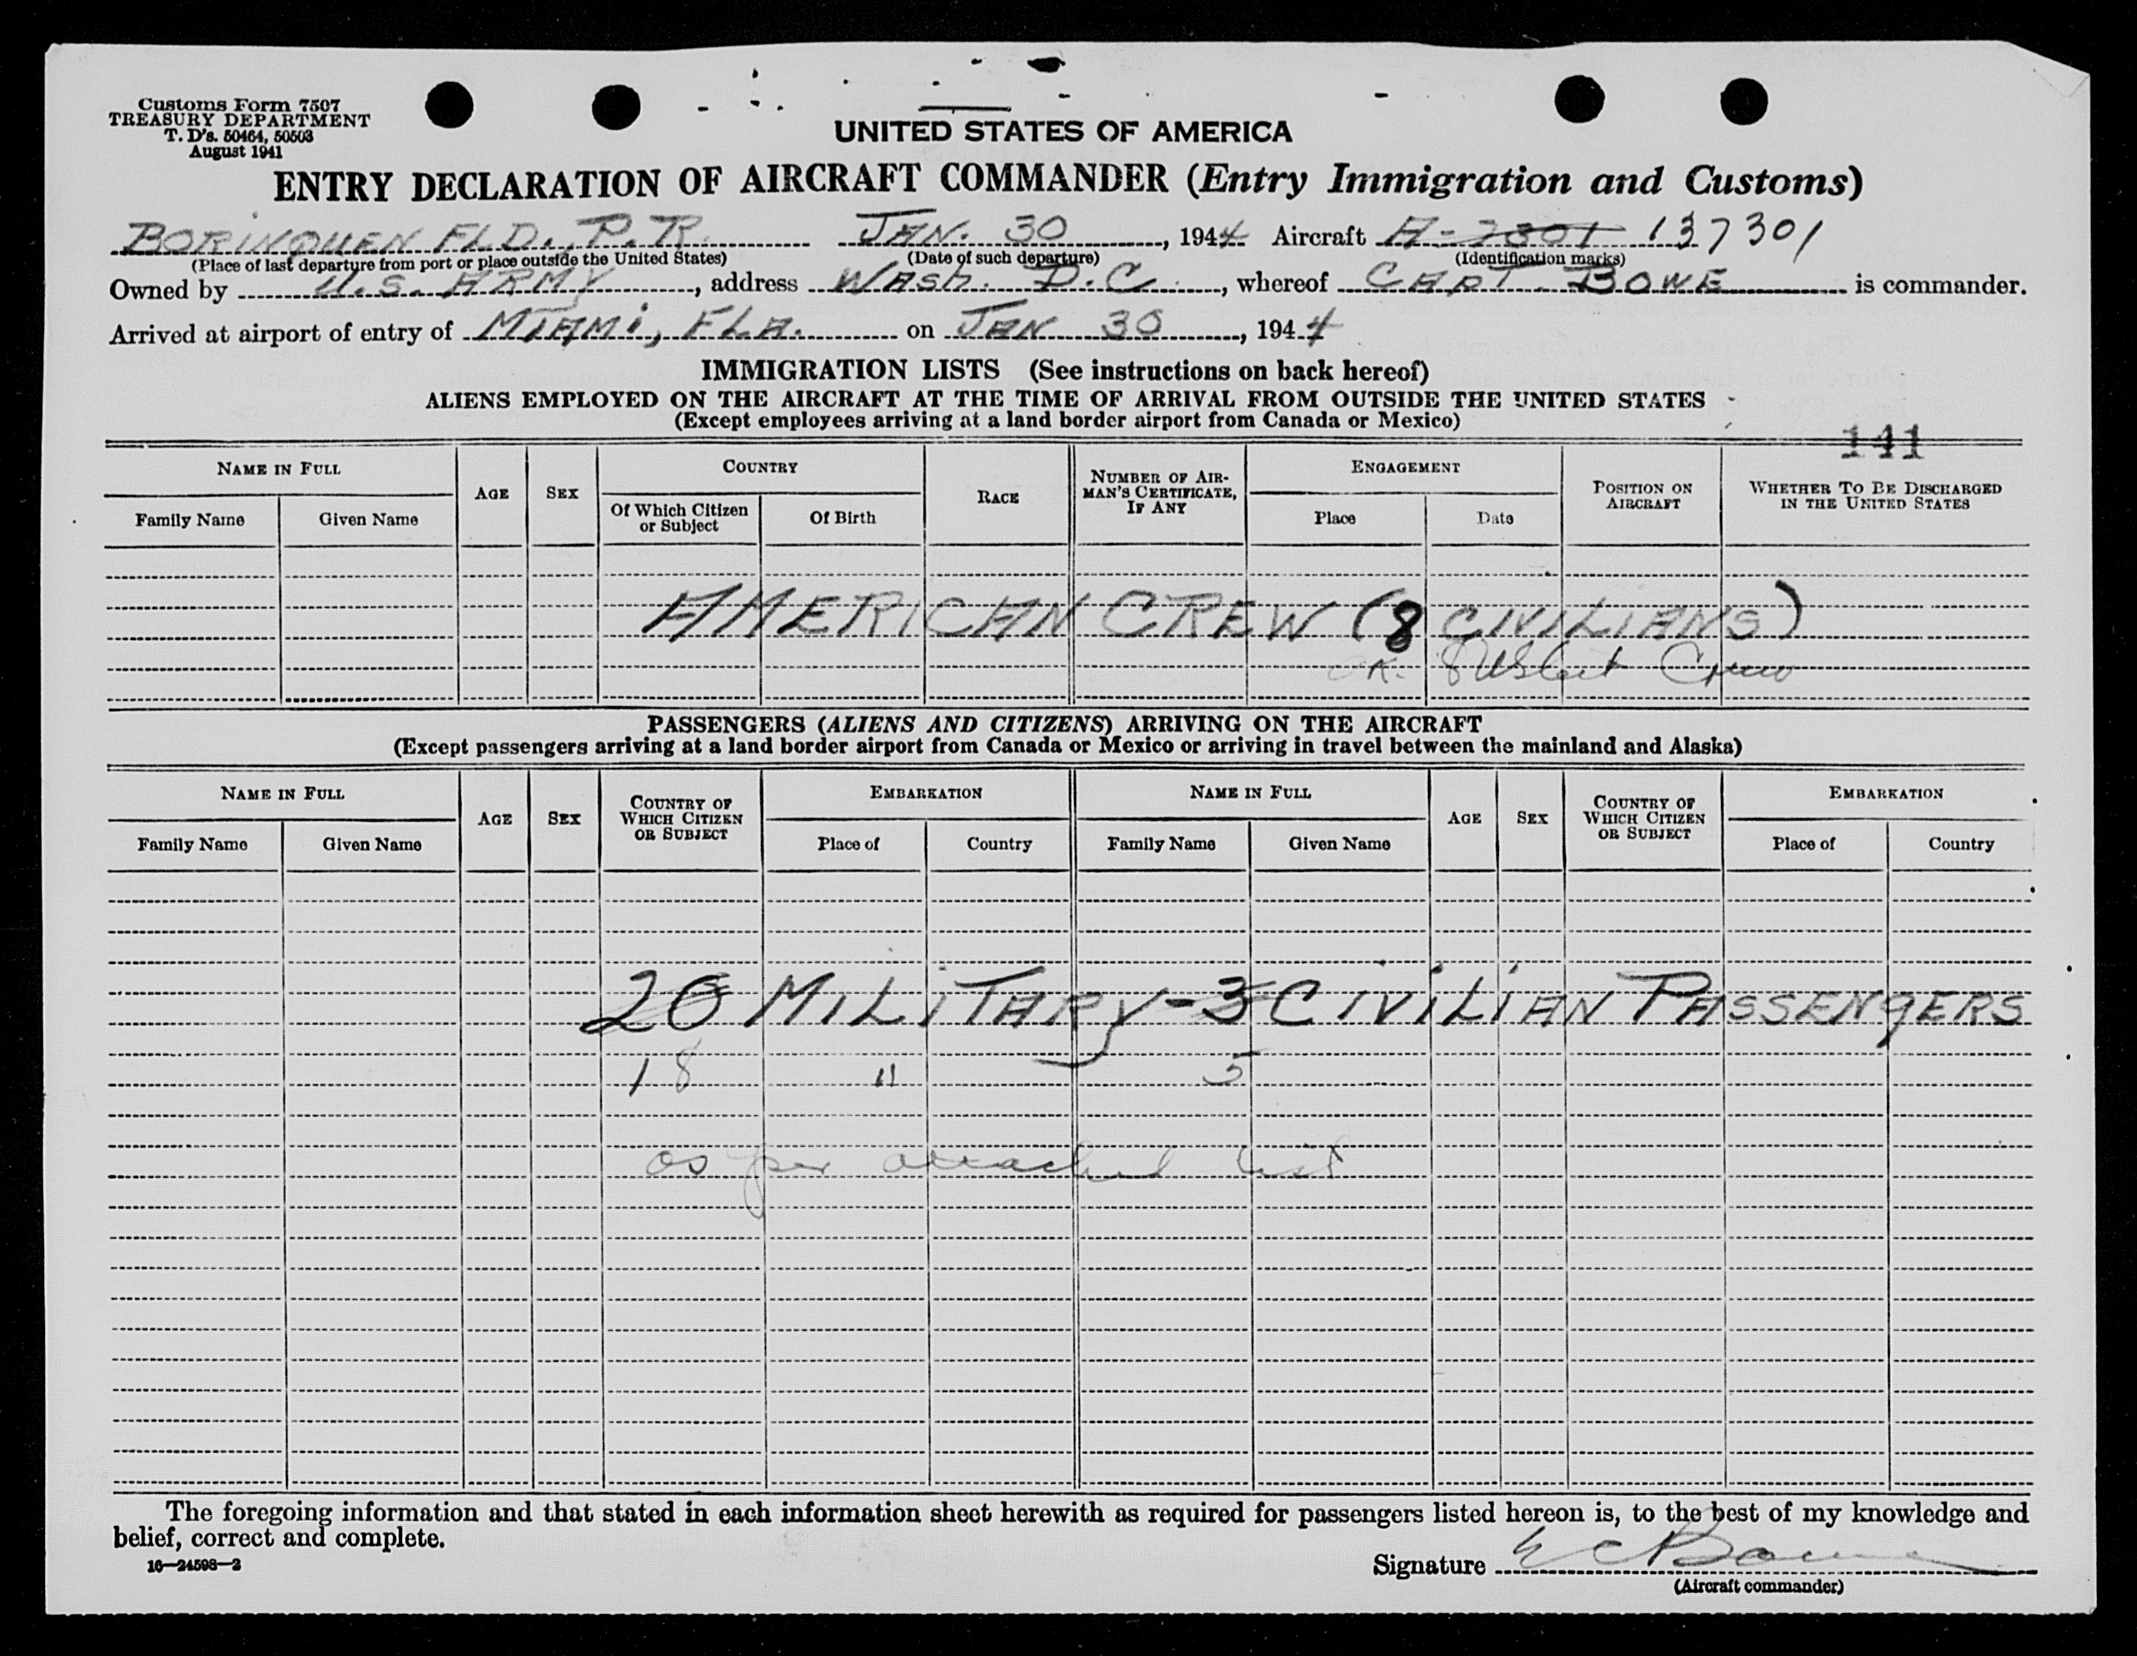 Customs Form 7507
TREASURY DEPARTMENT
T. D's. 50464, 50503
August 1941
UNITED STATES OF AMERICA
ENTRY DECLARATION OF AIRCRAFT COMMANDER (Entry Immigration and Customs)
BORINQUEN FLD., P.R. JAN. 30, 1944 Aircraft A-7301 137301
(Place of last departure from port or place outside the United States) (Date of such departure) (Identification marks)
Owned by U.S. ARMY, address WASH. D.C., whereof CAPT. BOWE is commander.
Arrived at airport of entry of MIAMI, FLA. on JAN 30, 1944
IMMIGRATION LISTS (See instructions on back hereof)
ALIENS EMPLOYED ON THE AIRCRAFT AT THE TIME OF ARRIVAL FROM OUTSIDE THE UNITED STATES
(Except employees arriving at a land border airport from Canada or Mexico)
141
NAME IN FULL AGE SEX COUNTRY RACE NUMBER OF AIRMAN'S CERTIFICATE, IF ANY ENGAGEMENT POSITION ON AIRCRAFT WHETHER TO BE DISCHARGED IN THE UNITED STATES
Family Name Given Name Of Which Citizen or Subject Of Birth Place Date
AMERICAN CREW (8 CIVILIANS)
OK. 8 USCit Crew
PASSENGERS (ALIENS AND CITIZENS) ARRIVING ON THE AIRCRAFT
(Except passengers arriving at a land border airport from Canada or Mexico or arriving in travel between the mainland and Alaska)
NAME IN FULL AGE SEX COUNTRY OF WHICH CITIZEN OR SUBJECT EMBARKATION NAME IN FULL AGE SEX COUNTRY OF WHICH CITIZEN OR SUBJECT EMBARKATION
Family Name Given Name Place of Country Family Name Given Name Place of Country
20 MILITARY - 3 CIVILIAN PASSENGERS
18 " 5
as per attached list
The foregoing information and that stated in each information sheet herewith as required for passengers listed hereon is, to the best of my knowledge and
belief, correct and complete.
16—24598-2
Signature E C Bowe
(Aircraft commander)